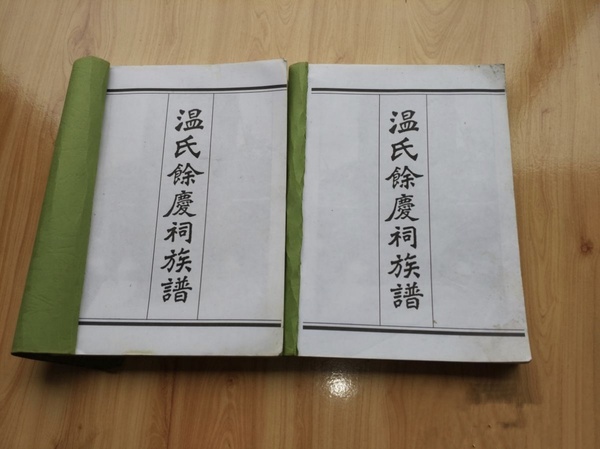 温氏餘慶祠族譜
温氏餘慶祠族譜